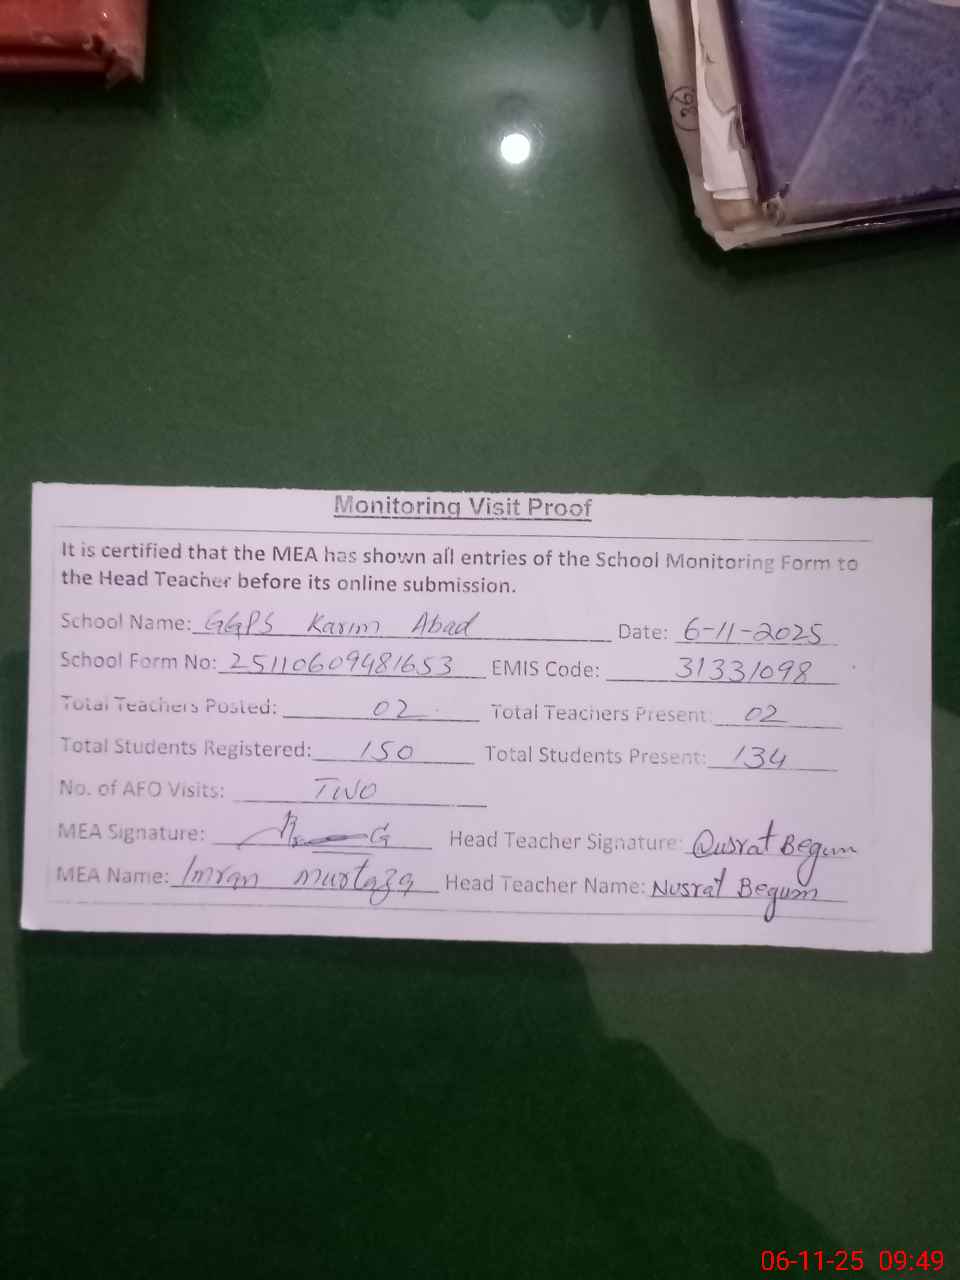 36
Monitoring Visit Proof
It is certified that the MEA has shown all entries of the School Monitoring Form to
the Head Teacher before its online submission.
School Name: GGPS Karim Abad Date: 6-11-2025
School Form No: 25110609481653 EMIS Code: 31331098
Total Teachers Posted: 02 Total Teachers Present: 02
Total Students Registered: 150 Total Students Present: 134
No. of AEO Visits: TWO
MEA Signature: Head Teacher Signature: Qusrat Begum
MEA Name: Imran murtaza Head Teacher Name: Nusrat Begum
06-11-25 09:49